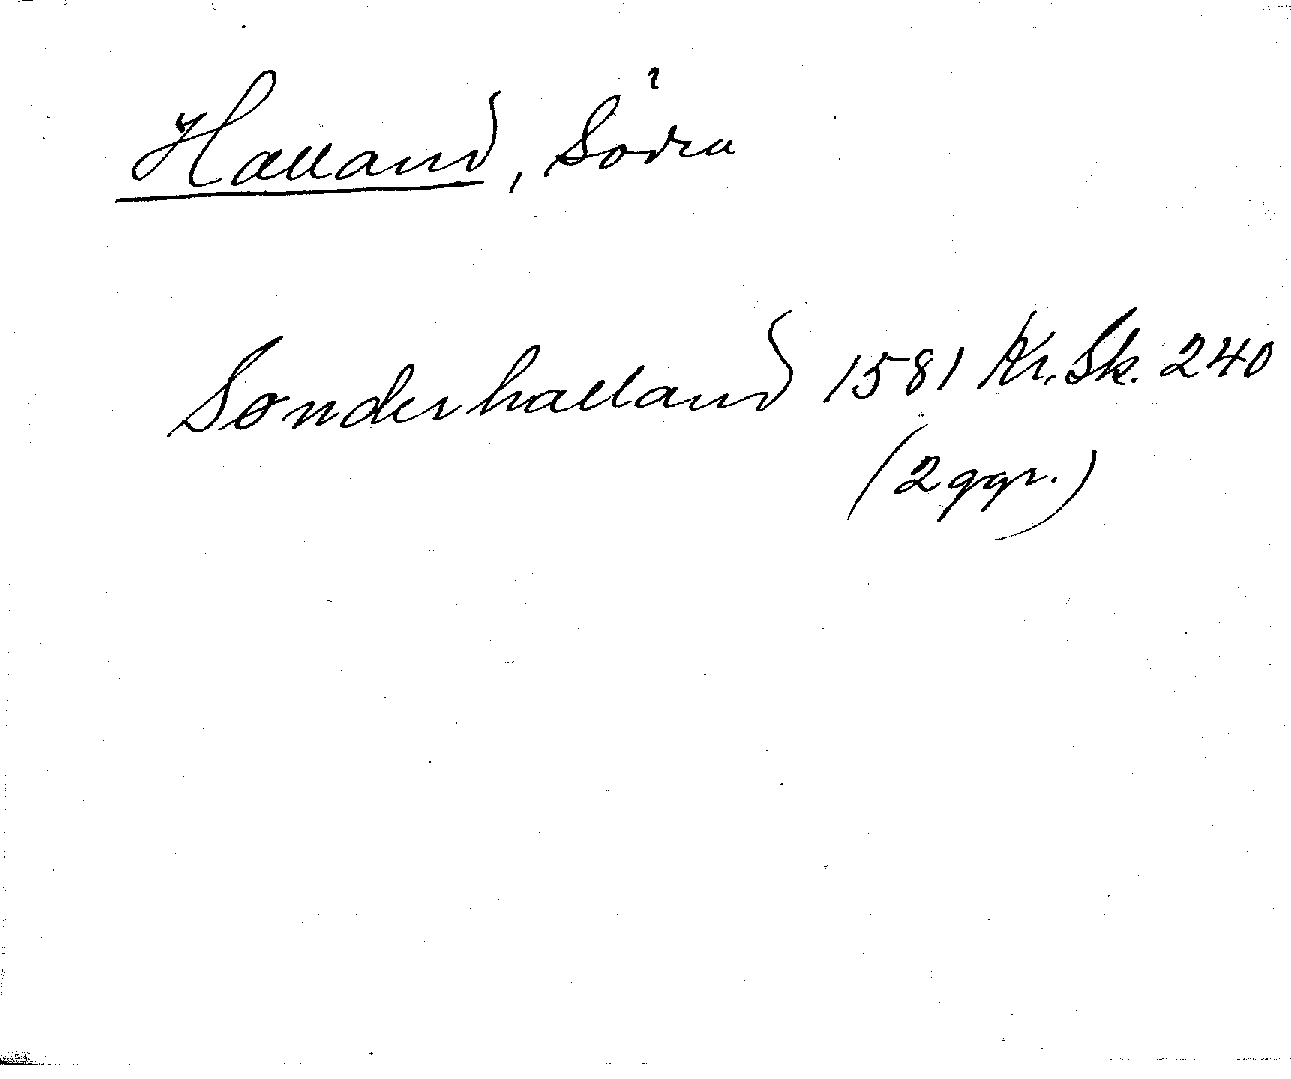 Halland, Södra
Sønderhalland 1581 Kr. Sk. 240
(2 ggr.)